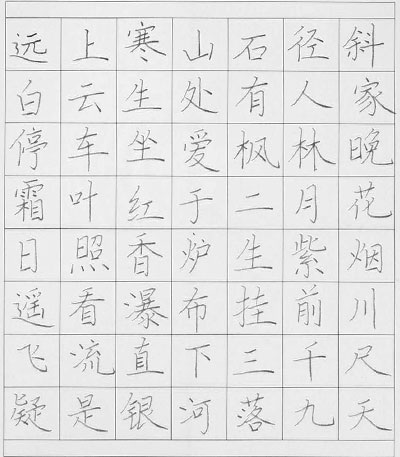 远上寒山石径斜
白云生处有人家
停车坐爱枫林晚
霜叶红于二月花
日照香炉生紫烟
遥看瀑布挂前川
飞流直下三千尺
疑是银河落九天